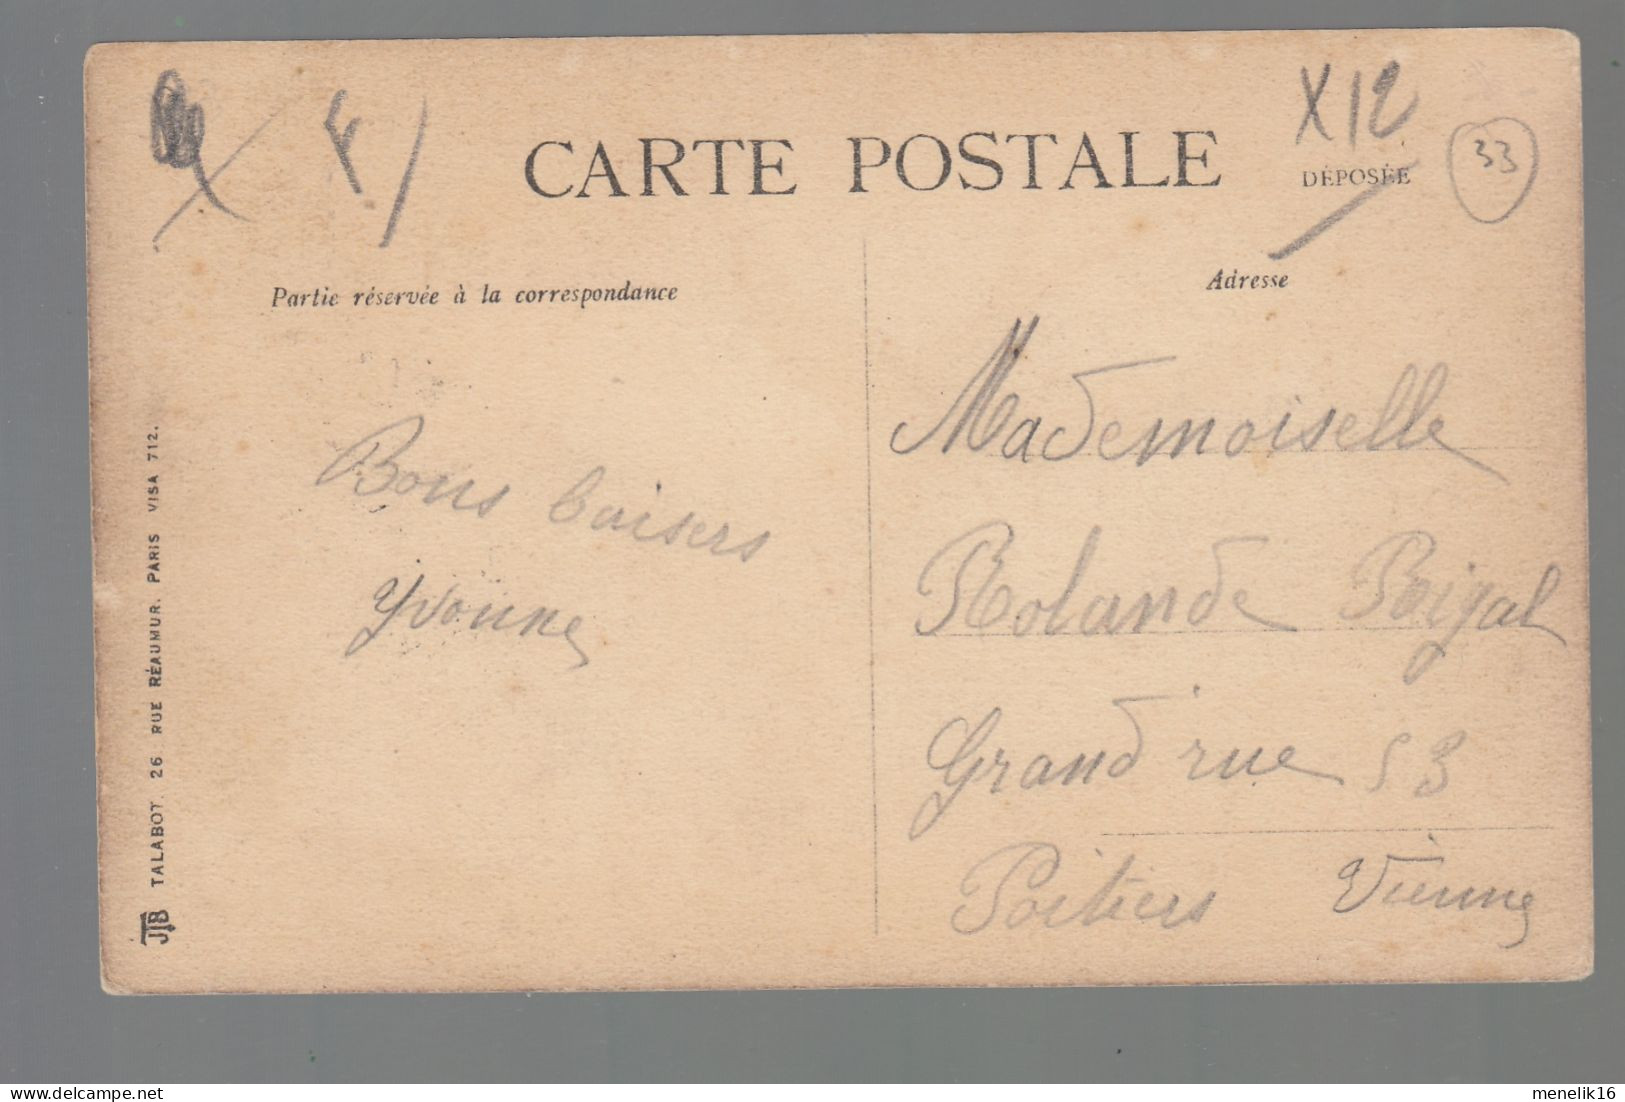 F
X12
33
CARTE POSTALE
DÉPOSÉE
Partie réservée à la correspondance
Adresse
Bons baisers
Yvonne
Mademoiselle
Rolande Rigal
Grand rue 53
Poitiers Vienne
JTB TALABOT. 26 RUE RÉAUMUR. PARIS VISA 712.
menelik16